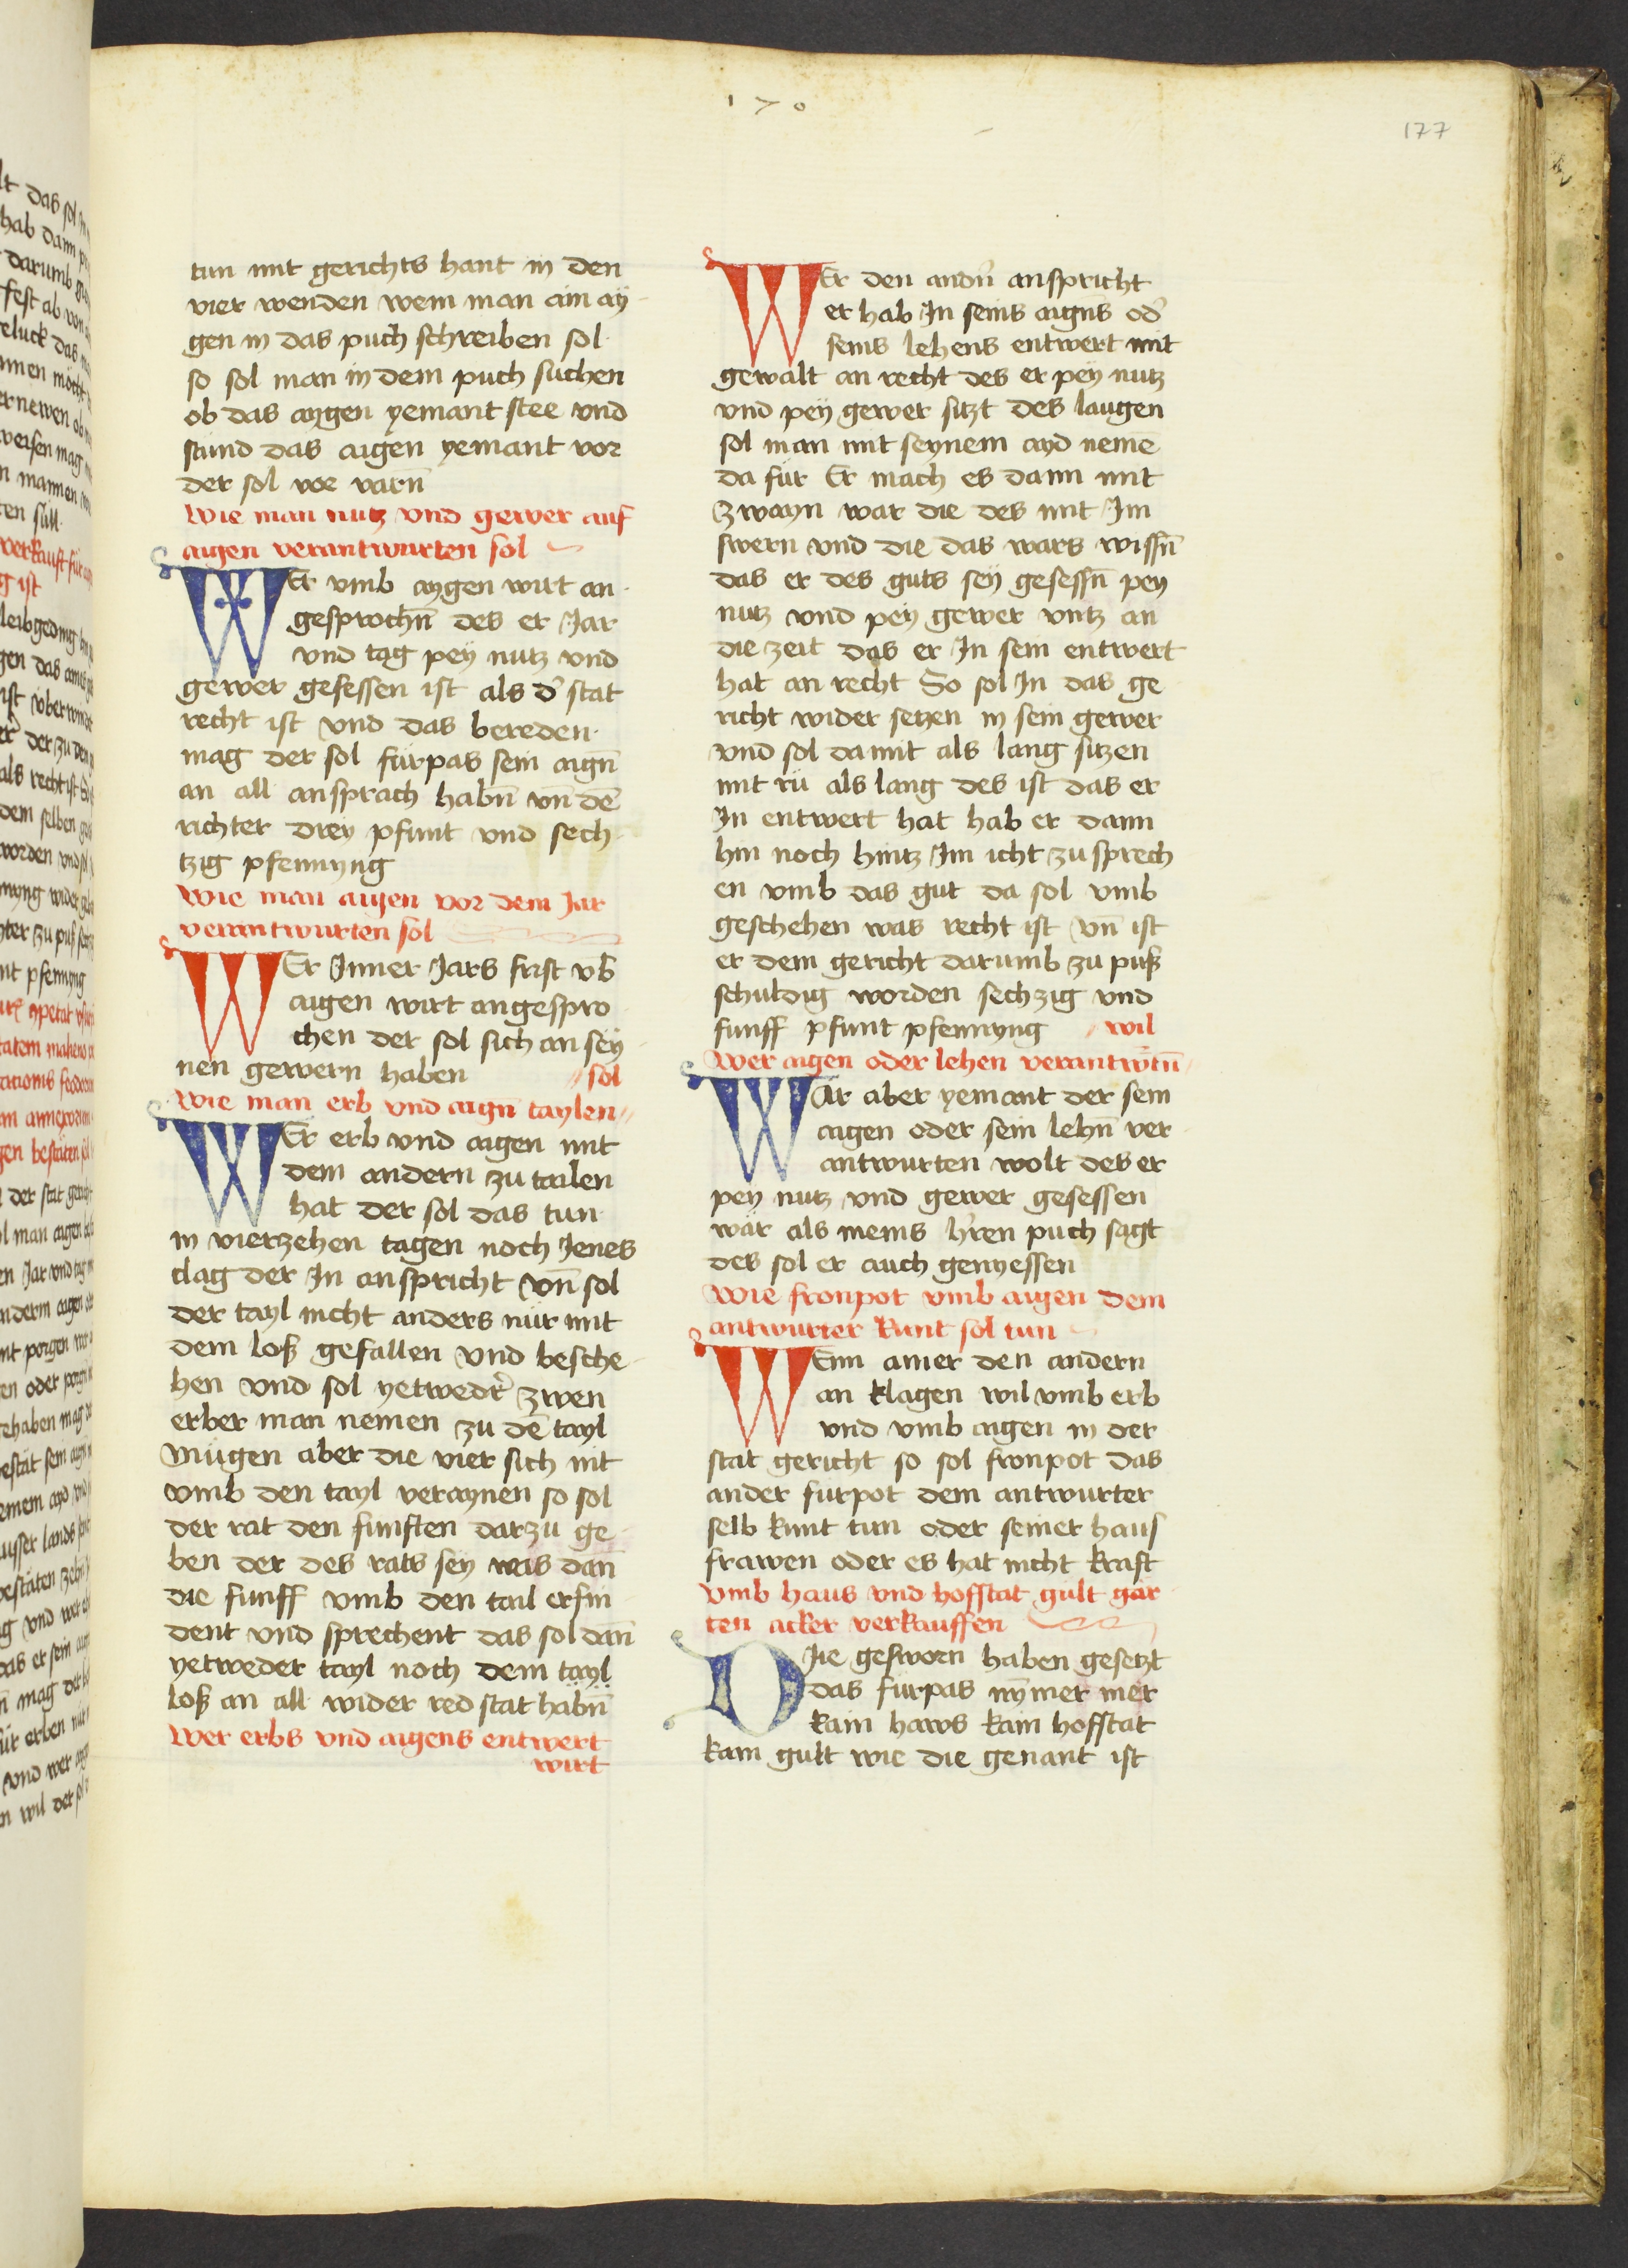 170
177
tun mit gerichts hant in den
vier wenden wem man ain ay
gen in das puch schreiben sol
so sol man in dem puch suchen
ob das aygen yemant stee vnd
stund das aigen yemant vor
der sol vor varn̄
Wie man nutz vnd gewer auf
aigen verantwurten sol
WEr vmb aygen wirt an
gesprochn̄ des er Jar
vnd tag pey nutz vnd
gewer gesessen ist als d' stat
recht ist vnd das bereden
mag der sol fürpas sein aign̄
an all ansprach habn̄ vn̄ dē
richter drey pfunt vnd sech
tzig pfennyng
Wie man aigen vor dem Jar
verantwurten sol
WEr Inner Jars frist vb̄
aigen wirt angespro
chen der sol sich an sey
nen gewern haben // sol
Wie man erb vnd aign̄ taylen //
WEr erb vnd aigen mit
dem andern zu tailen
hat der sol das tun
in vierzehen tagen noch Jenes
clag der In anspricht vn̄ sol
der tayl nicht anders nür mit
dem loß gefallen vnd besche
hen vnd sol yetwedr' zwen
erber man nemen zu dē tayl
Mügen aber die vier sich nit
vmb den tayl veraynen so sol
der rat den funften darzu ge
ben der des rats sey was dan̄
die funff vmb den tail erfin
dent vnd sprechent das sol dan̄
yetweder tayl noch dem tayl
loß an all wider red stat habn̄
Wer erbs vnd aigens entwert
wirt
WEr den andn̄ anspricht
er hab In seins aigns od'
seins lehens entwert mit
gewalt an recht des er pey nutz
vnd pey gewer sitzt des laugen
sol man mit seynem ayd nemē
da für Er mach es dann mit
zwayn war die des mit Im
swern vnd die das wars wissn̄
das er des guts sey gesessn̄ pey
nutz vnd pey gewer vntz an
die zeit das er In sein entwert
hat an recht So sol In das ge
richt wider setzen in sein gewer
vnd sol da mit als lang sitzen
mit rü als lang des ist das er
In entwert hat hab er dann
hin noch hintz Im icht zu sprech
en vmb das gut da sol vmb
geschehen was recht ist vn̄ ist
er dem gericht darumb zu puß
schuldig worden sechzig vnd
funff pfunt pfennyng // wil
Wer aigen oder lehen verantwtn̄ //
WAr aber yemant der sein
aigen oder sein lehn̄ ver
antwurten wolt des er
pey nutz vnd gewer gesessen
wär als meins h'ren puch sagt
des sol er auch genyessen
Wie fronpot vmb aigen dem
antwurter kunt sol tun
WEnn ainer den andern
an klagen wil vmb erb
vnd vmb aigen in der
stat gericht so sol fronpot das
ander fürpot dem antwurter
selb kunt tun oder seiner haus
frawen oder es hat nicht kraft
vmb haus vnd hofstat gült gar
ten acker verkauffen
DIe gesworn haben gesetzt
das fürpas nȳmer mer
kain haws kain hofstat
kain gült wie die genant ist